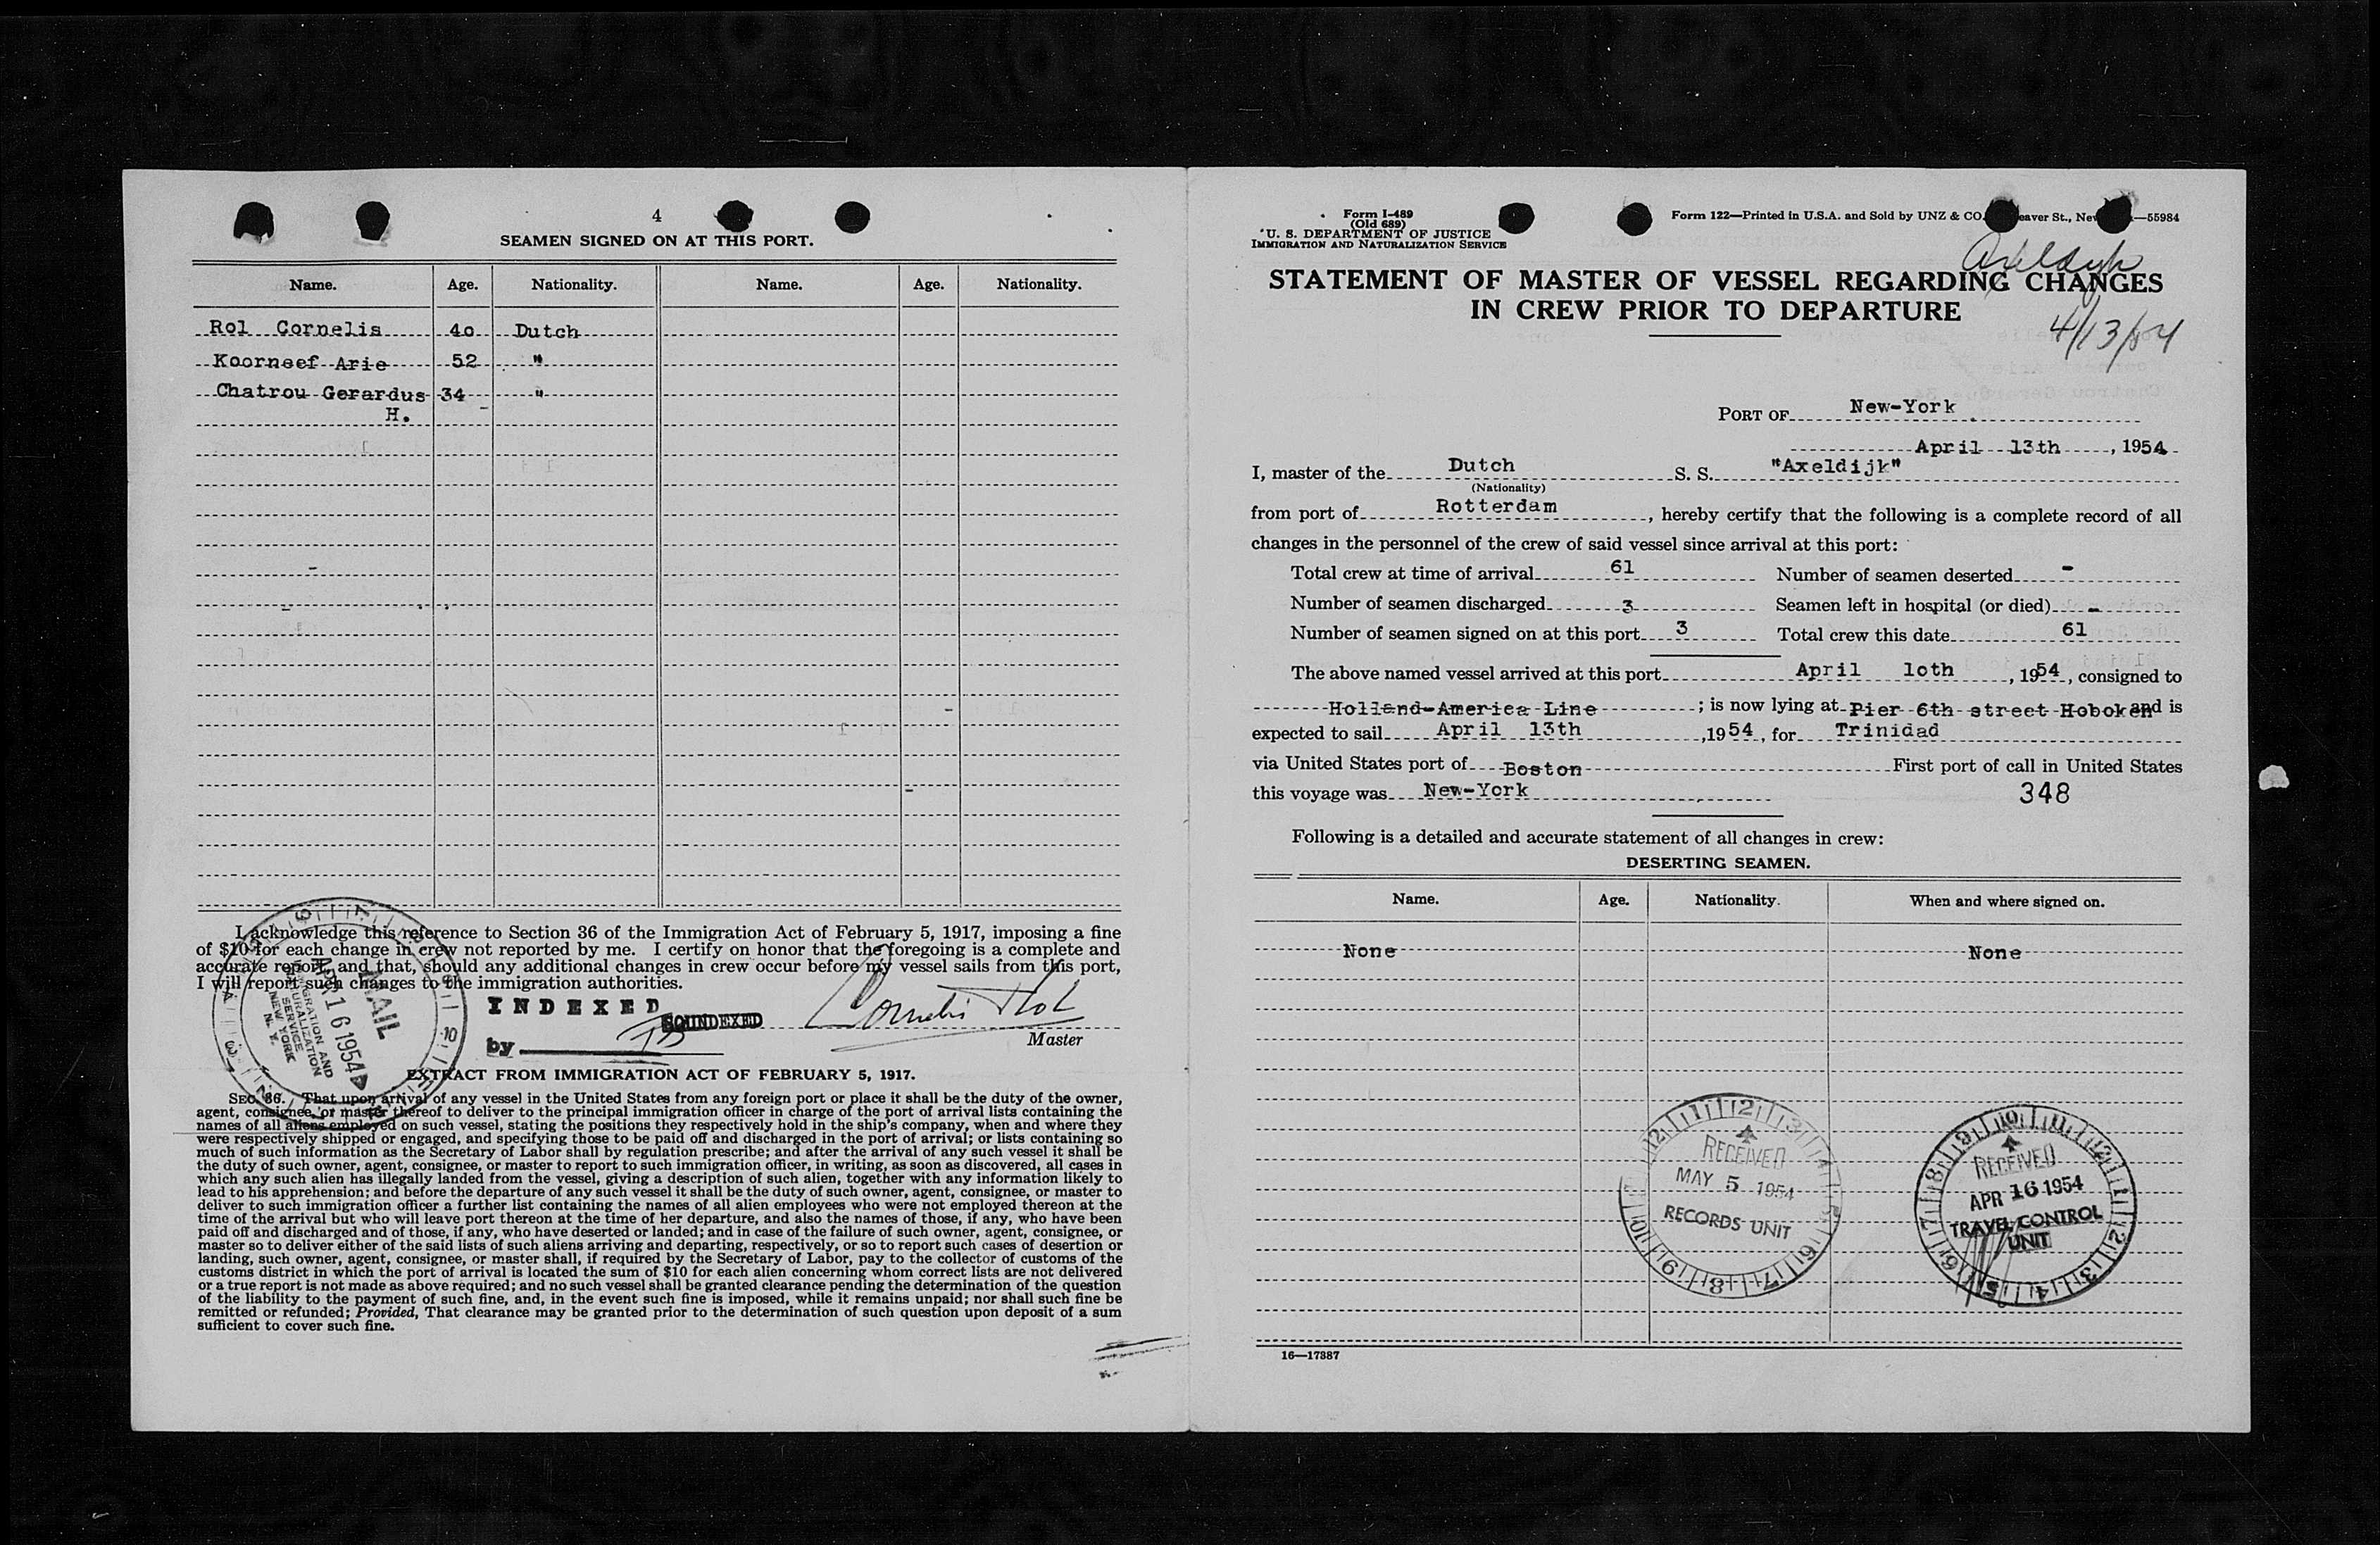 4
SEAMEN SIGNED ON AT THIS PORT.
Name. Age. Nationality. Name. Age. Nationality.
Rol Cornelis 4o Dutch
Koorneef Arie 52 "
Chatrou Gerardus 34 "
H.
I acknowledge this reference to Section 36 of the Immigration Act of February 5, 1917, imposing a fine
of $10 for each change in crew not reported by me. I certify on honor that the foregoing is a complete and
accurate report, and that, should any additional changes in crew occur before my vessel sails from this port,
I will report such changes to the immigration authorities.
MAIL
APR 16 1954
IMMIGRATION AND
NATURALIZATION
SERVICE
NEW YORK
N. Y.
INDEXED
SOUNDEXED
by
Cornelis Rol
Master
EXTRACT FROM IMMIGRATION ACT OF FEBRUARY 5, 1917.
SEC. 36. That upon arrival of any vessel in the United States from any foreign port or place it shall be the duty of the owner,
agent, consignee, or master thereof to deliver to the principal immigration officer in charge of the port of arrival lists containing the
names of all aliens employed on such vessel, stating the positions they respectively hold in the ship's company, when and where they
were respectively shipped or engaged, and specifying those to be paid off and discharged in the port of arrival; or lists containing so
much of such information as the Secretary of Labor shall by regulation prescribe; and after the arrival of any such vessel it shall be
the duty of such owner, agent, consignee, or master to report to such immigration officer, in writing, as soon as discovered, all cases in
which any such alien has illegally landed from the vessel, giving a description of such alien, together with any information likely to
lead to his apprehension; and before the departure of any such vessel it shall be the duty of such owner, agent, consignee, or master to
deliver to such immigration officer a further list containing the names of all alien employees who were not employed thereon at the
time of the arrival but who will leave port thereon at the time of her departure, and also the names of those, if any, who have been
paid off and discharged and of those, if any, who have deserted or landed; and in case of the failure of such owner, agent, consignee, or
master so to deliver either of the said lists of such aliens arriving and departing, respectively, or so to report such cases of desertion or
landing, such owner, agent, consignee, or master shall, if required by the Secretary of Labor, pay to the collector of customs of the
customs district in which the port of arrival is located the sum of $10 for each alien concerning whom correct lists are not delivered
or a true report is not made as above required; and no such vessel shall be granted clearance pending the determination of the question
of the liability to the payment of such fine, and, in the event such fine is imposed, while it remains unpaid; nor shall such fine be
remitted or refunded; Provided, That clearance may be granted prior to the determination of such question upon deposit of a sum
sufficient to cover such fine.
Form I-489
(Old 689)
U. S. DEPARTMENT OF JUSTICE
IMMIGRATION AND NATURALIZATION SERVICE
Form 122—Printed in U.S.A. and Sold by UNZ & CO. eaver St., New —55984
Axeldyk
STATEMENT OF MASTER OF VESSEL REGARDING CHANGES
IN CREW PRIOR TO DEPARTURE
4/13/54
PORT OF New-York
April 13th, 1954
I, master of the Dutch S. S. "Axeldijk"
(Nationality)
from port of Rotterdam, hereby certify that the following is a complete record of all
changes in the personnel of the crew of said vessel since arrival at this port:
Total crew at time of arrival 61 Number of seamen deserted -
Number of seamen discharged 3 Seamen left in hospital (or died) -
Number of seamen signed on at this port 3 Total crew this date 61
The above named vessel arrived at this port April 1oth, 1954, consigned to
Holland-America Line; is now lying at Pier 6th street Hoboken and is
expected to sail April 13th, 1954, for Trinidad
via United States port of Boston First port of call in United States
this voyage was New-York 348
Following is a detailed and accurate statement of all changes in crew:
DESERTING SEAMEN.
Name. Age. Nationality. When and where signed on.
None None
RECEIVED
MAY 5 1954
RECORDS UNIT
RECEIVED
APR 16 1954
TRAVEL CONTROL
UNIT
16—17387